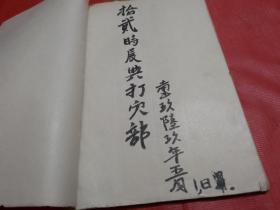 拾貳時辰與打穴部
壹玖陸玖年五月
1日畢.